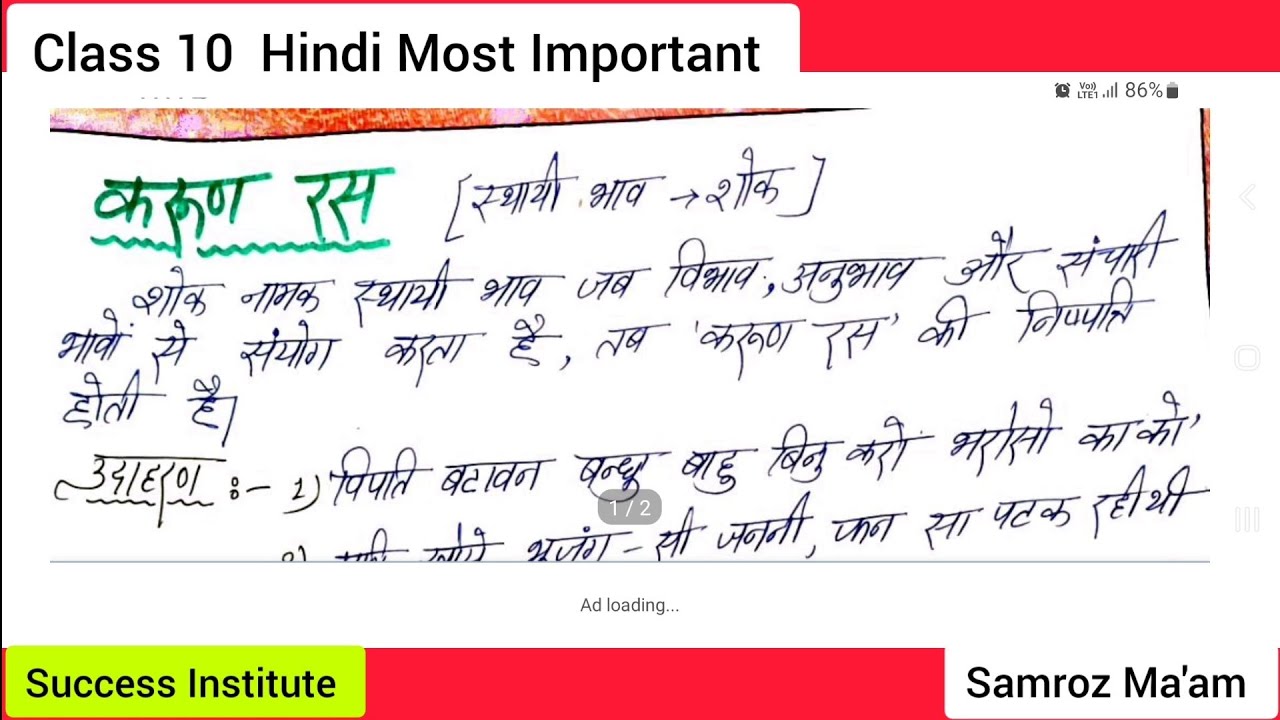 Class 10 Hindi Most Important
Vo))
LTE1
86%
करूण रस [स्थायी भाव → शोक]
शोक नामक स्थायी भाव जब विभाव, अनुभाव और संचारी
भावों से संयोग करता है, तब 'करूण रस' की निष्पति
होती है।
उदाहरण :- 1) 'विपति बटावन बन्धु बाहु बिनु करो भरोसो काको'
भुजंग-सी जननी, फन सा पटक रही थी
1 / 2
Ad loading...
Success Institute
Samroz Ma'am